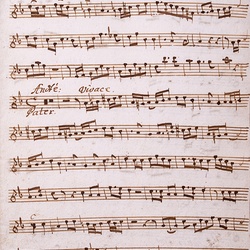 Andte: Vivace.
Pater